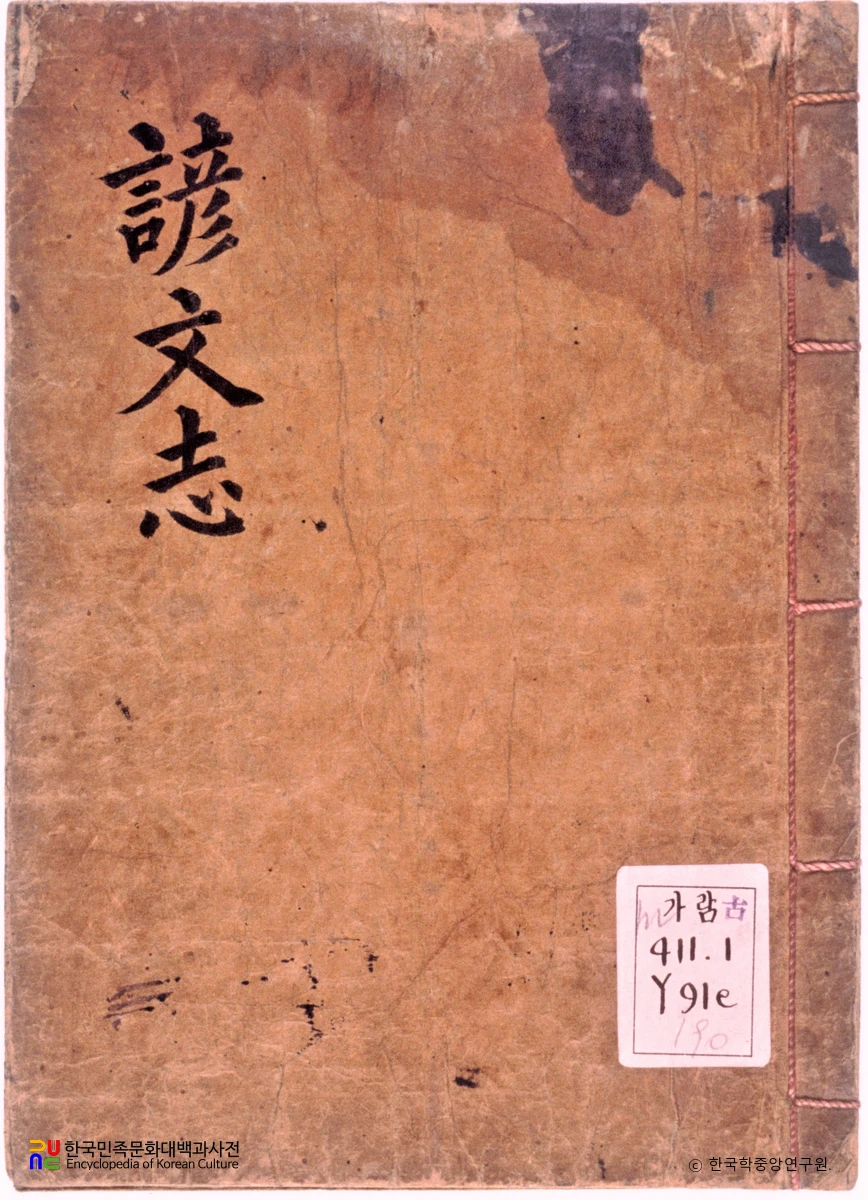 諺文志
가람 古
411.1
Y91e
190
한국민족문화대백과사전
Encyclopedia of Korean Culture
ⓒ 한국학중앙연구원.